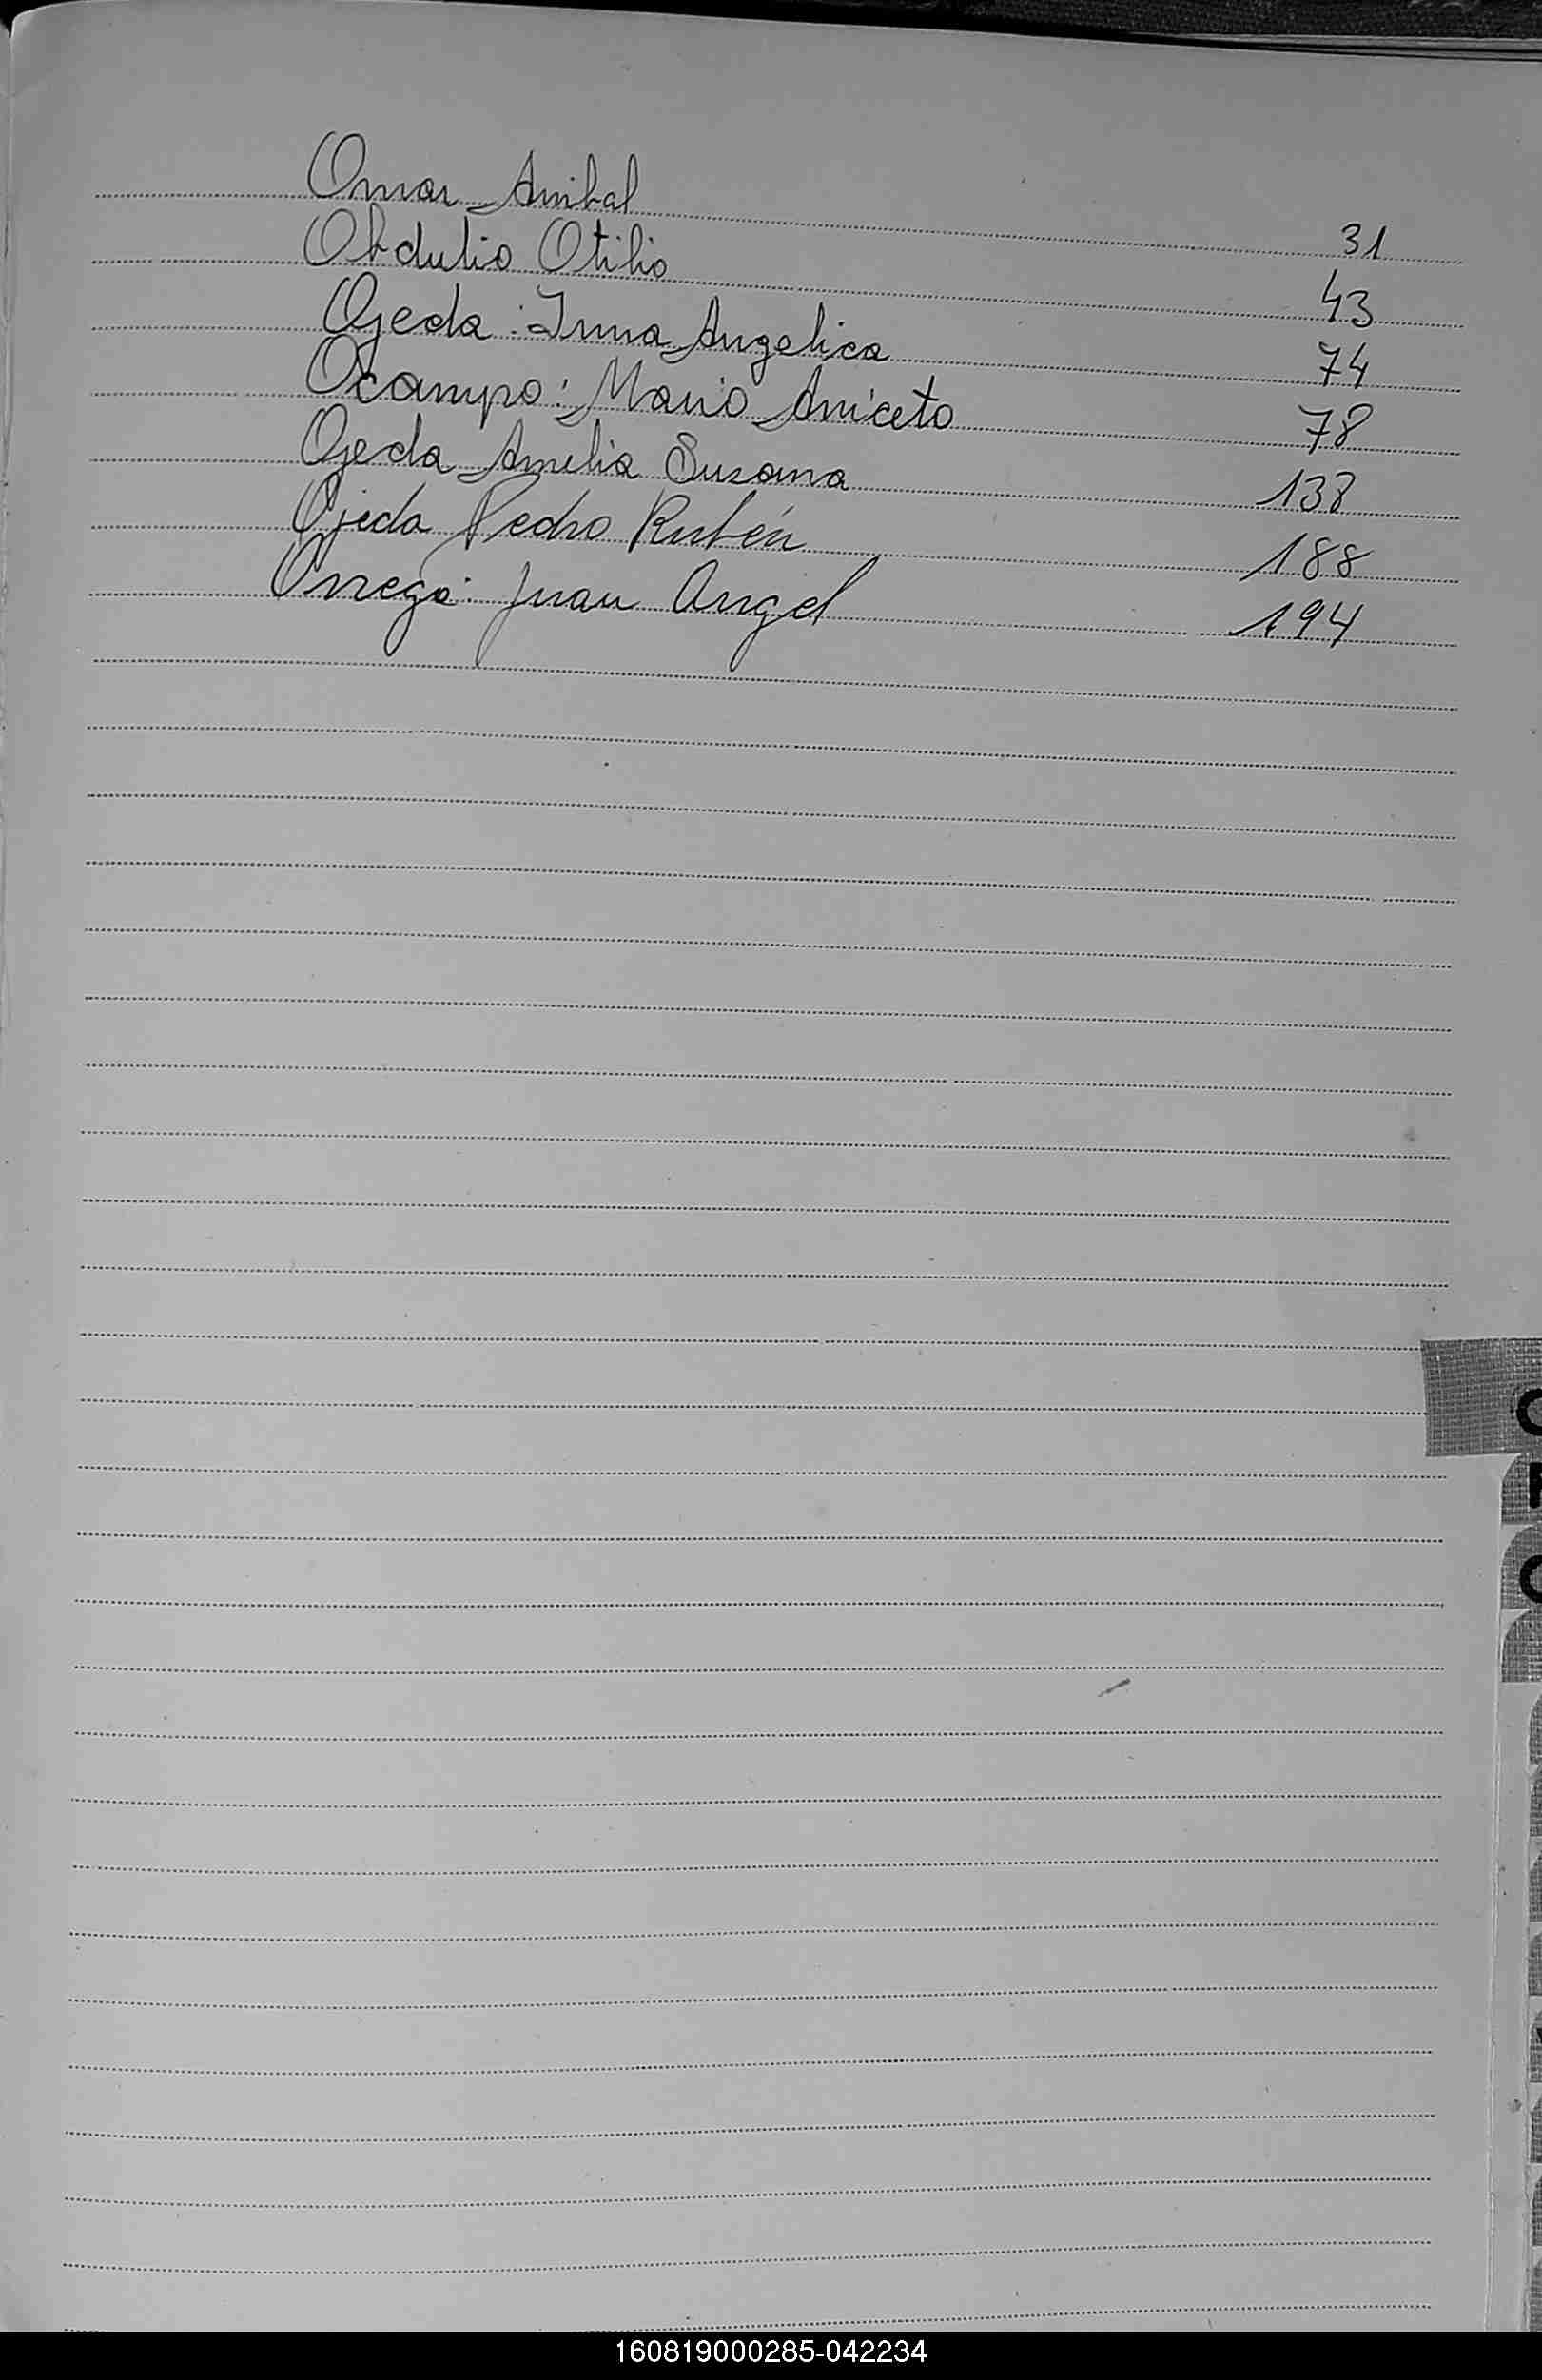 Omar Anibal 31
Obdulio Otilio 43
Ojeda: Irma Angelica 74
Ocampo: Mario Aniceto 78
Ojeda Amelia Susana 138
Ojeda Pedro Rubén 188
Orrego: Juan Angel 194
160819000285-042234